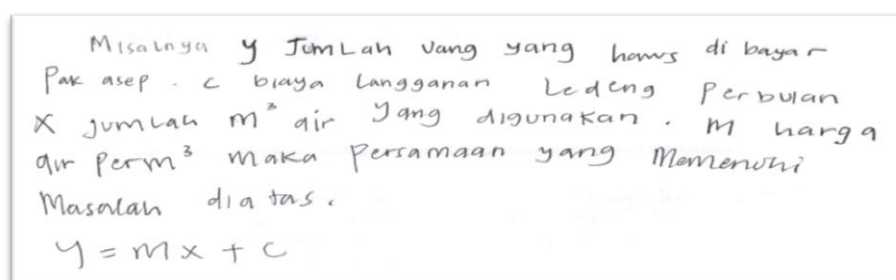 Misalnya y Jumlah uang yang harus di bayar
Pak asep . c biaya Langganan Ledeng Perbulan
x jumlah m³ air yang digunakan . m harga
air Perm³ maka Persamaan yang Memenuhi
Masalah diatas.
y = mx + c